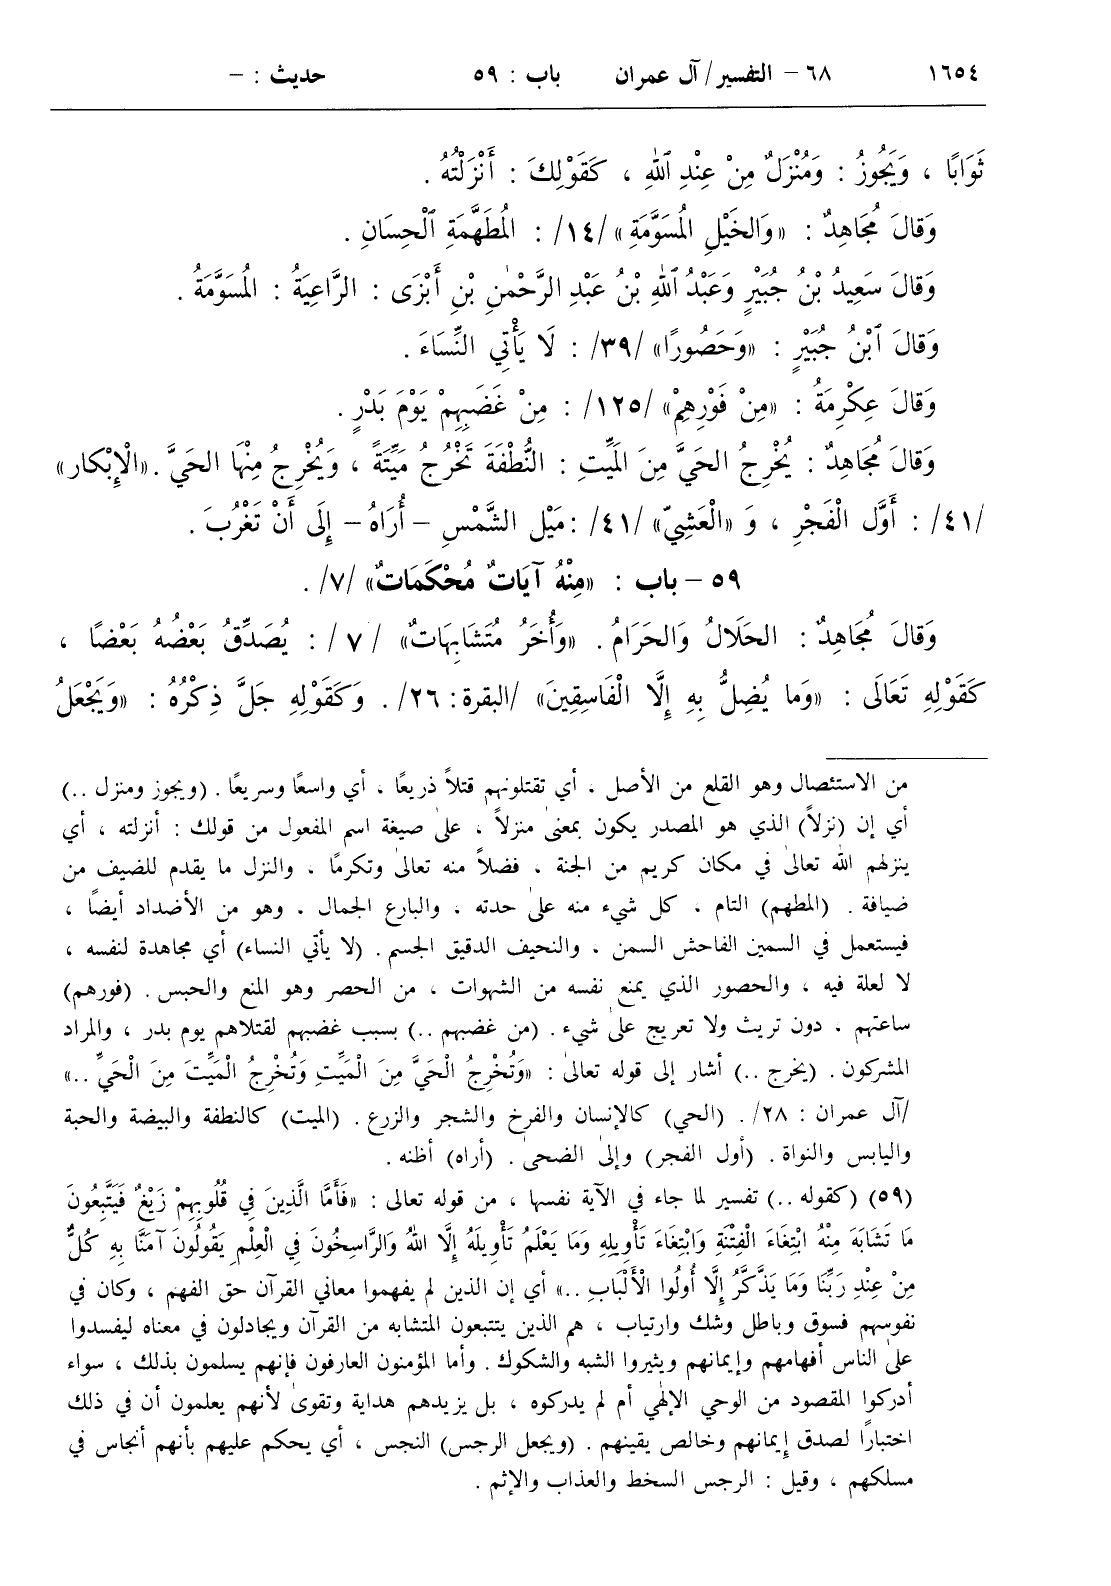 ١٦٥٤ ٦٨ – التفسير/ آل عمران باب : ٥٩ حديث : –
ثَوَابًا ، وَيَجُوزُ : وَمُنْزَلٌ مِنْ عِنْدِ ٱللهِ ، كَقَوْلِكَ : أَنْزَلْتُهُ .
وَقالَ مُجَاهِدٌ : «وَالخَيْلِ المُسَوَّمَةِ» /١٤/ : المُطَهَّمَةِ ٱلْحِسَانِ .
وَقالَ سَعِيدُ بْنُ جُبَيْرٍ وَعَبْدُ ٱللهِ بْنُ عَبْدِ الرَّحْمٰنِ بْنِ أَبْزَى : الرَّاعِيَةُ : المُسَوَّمَةُ .
وَقالَ ٱبْنُ جُبَيْرٍ : «وَحَصُورًا» /٣٩/ : لَا يَأْتِي النِّسَاءَ .
وَقالَ عِكْرِمَةُ : «مِنْ فَوْرِهِمْ» /١٢٥/ : مِنْ غَضَبِهِمْ يَوْمَ بَدْرٍ .
وَقالَ مُجَاهِدٌ : يُخْرِجُ الحَيَّ مِنَ المَيِّتِ : النُّطْفَةَ تَخْرُجُ مَيِّتَةً ، وَيُخْرِجُ مِنْهَا الحَيَّ . «الْإِبْكار»
/٤١/ : أَوَّل الْفَجْرِ ، وَ «الْعَشِيّ» /٤١/ : مَيْل الشَّمْسِ – أُرَاهُ – إِلَى أَنْ تَغْرُبَ .
٥٩ – باب : «مِنْهُ آيَاتٌ مُحْكَمَاتٌ» /٧/ .
وَقالَ مُجَاهِدٌ : الحَلَالُ وَالحَرَامُ . «وَأُخَرُ مُتَشَابِهَاتٌ» /٧/ : يُصَدِّقُ بَعْضُهُ بَعْضًا ،
كَقَوْلِهِ تَعَالَى : «وَما يُضِلُّ بِهِ إِلَّا الْفَاسِقِينَ» /البقرة: ٢٦/ . وَكَقَوْلِهِ جَلَّ ذِكْرُهُ : «وَيَجْعَلُ
من الاستئصال وهو القلع من الأصل ، أي تقتلونهم قتلاً ذريعًا ، أي واسعًا وسريعًا . (ويجوز ومنزل ..)
أي إن (نزلاً) الذي هو المصدر يكون بمعنىٰ منزلاً ، علىٰ صيغة اسم المفعول من قولك : أنزلته ، أي
ينزلهم الله تعالىٰ في مكان كريم من الجنة ، فضلاً منه تعالىٰ وتكرمًا ، والنزل ما يقدم للضيف من
ضيافة . (المطهم) التام ، كل شيء منه علىٰ حدته ، والبارع الجمال . وهو من الأضداد أيضًا ،
فيستعمل في السمين الفاحش السمن ، والنحيف الدقيق الجسم . (لا يأتي النساء) أي مجاهدة لنفسه ،
لا لعلة فيه ، والحصور الذي يمنع نفسه من الشهوات ، من الحصر وهو المنع والحبس . (فورهم)
ساعتهم ، دون تريث ولا تعريج علىٰ شيء . (من غضبهم ..) بسبب غضبهم لقتلاهم يوم بدر ، والمراد
المشركون . (يخرج ..) أشار إلى قوله تعالىٰ : «وَتُخْرِجُ الْحَيَّ مِنَ الْمَيِّتِ وَتُخْرِجُ الْمَيِّتَ مِنَ الْحَيِّ ..»
/آل عمران : ٢٨/ . (الحي) كالإنسان والفرخ والشجر والزرع . (الميت) كالنطفة والبيضة والحبة
واليابس والنواة . (أول الفجر) وإلىٰ الضحىٰ . (أراه) أظنه .
(٥٩) (كقوله ..) تفسير لما جاء في الآية نفسها ، من قوله تعالى : «فَأَمَّا الَّذِينَ فِي قُلُوبِهِمْ زَيْغٌ فَيَتَّبِعُونَ
مَا تَشَابَهَ مِنْهُ ابْتِغَاءَ الْفِتْنَةِ وَابْتِغَاءَ تَأْوِيلِهِ وَمَا يَعْلَمُ تَأْوِيلَهُ إِلَّا اللهُ وَالرَّاسِخُونَ فِي الْعِلْمِ يَقُولُونَ آمَنَّا بِهِ كُلٌّ
مِنْ عِنْدِ رَبِّنَا وَمَا يَذَّكَّرُ إِلَّا أُولُوا الْأَلْبَابِ ..» أي إن الذين لم يفهموا معاني القرآن حق الفهم ، وكان في
نفوسهم فسوق وباطل وشك وارتياب ، هم الذين يتتبعون المتشابه من القرآن ويجادلون في معناه ليفسدوا
علىٰ الناس أفهامهم وإيمانهم ويثيروا الشبه والشكوك . وأما المؤمنون العارفون فإنهم يسلمون بذلك ، سواء
أدركوا المقصود من الوحي الإلٰهي أم لم يدركوه ، بل يزيدهم هداية وتقوىٰ لأنهم يعلمون أن في ذلك
اختبارًا لصدق إيمانهم وخالص يقينهم . (ويجعل الرجس) النجس ، أي يحكم عليهم بأنهم أنجاس في
مسلكهم ، وقيل : الرجس السخط والعذاب والإثم .